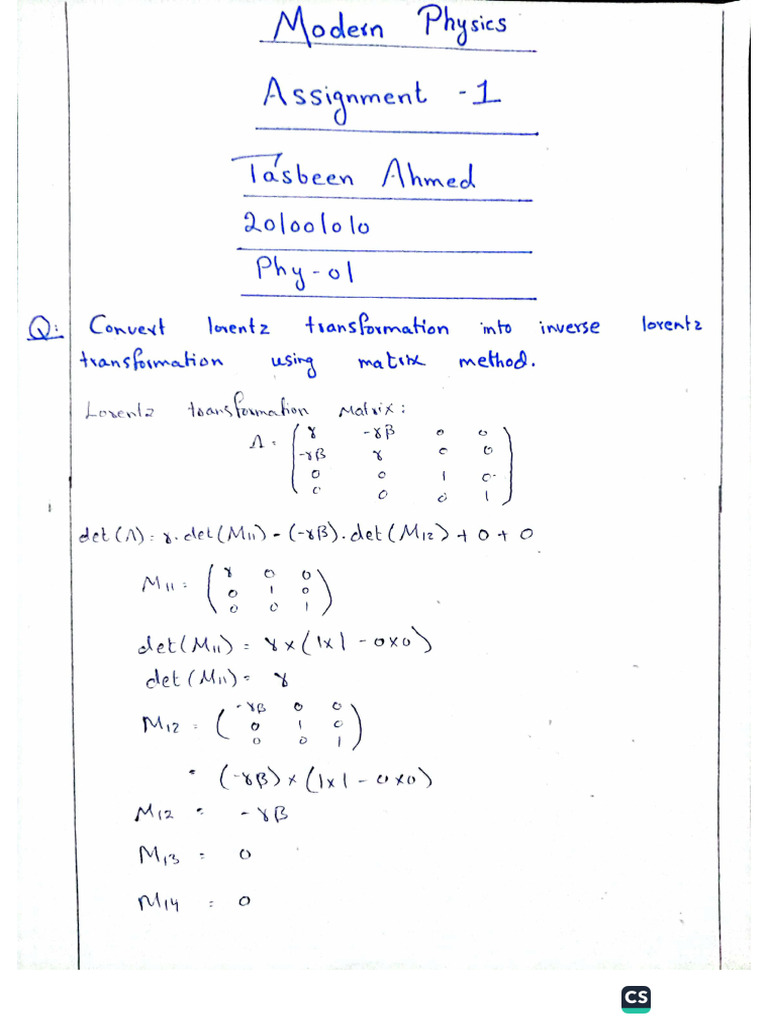 Modern Physics
Assignment - 1
Tasbeen Ahmed
201001010
Phy-01
Q: Convert lorentz transformation into inverse lorentz
transformation using matrix method.
Lorentz transformation Matrix:
Λ = ( γ -γβ 0 0
-γβ γ 0 0
0 0 1 0
0 0 0 1 )
det(Λ) = γ.det(M11) - (-γβ).det(M12) + 0 + 0
M11 = ( γ 0 0
0 1 0
0 0 1 )
det(M11) = γ×(1×1 - 0×0)
det(M11) = γ
M12 = ( -γβ 0 0
0 1 0
0 0 1 )
= (-γβ)×(1×1 - 0×0)
M12 = -γβ
M13 = 0
M14 = 0
CS